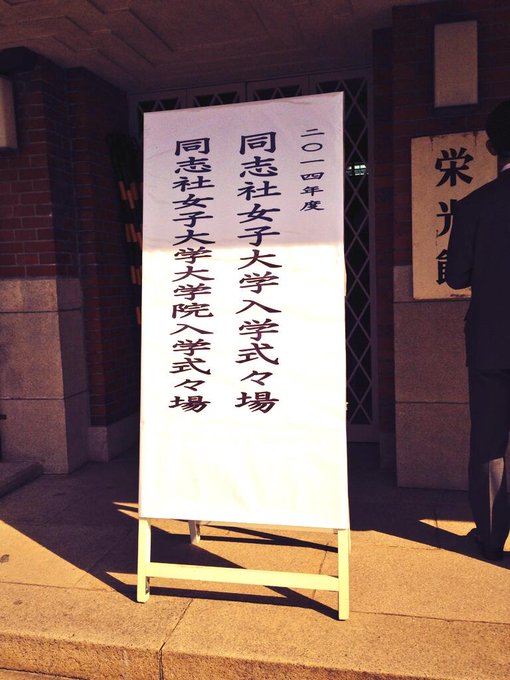 二〇一四年度
同志社女子大学入学式々場
同志社女子大学大学院入学式々場
栄光館